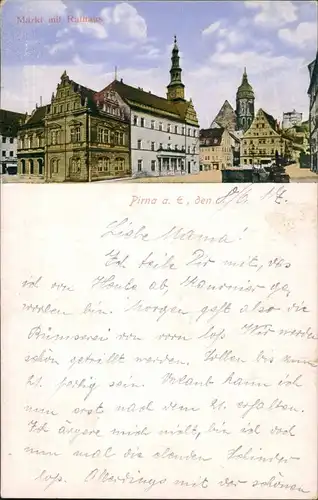 Markt mit Rathaus
Pirna a. E., den 8/6. 17.
Liebe Mama!
Ich teile Dir mit, das
ich von Heute ab Kanonier ge-
worden bin. Morgen geht also die
Bumserei von vorn los. Wir werden
schön gedrillt werden. Sollen bis zum
21. fertig sein. Urlaub kann ich
nun erst nach dem 21. erhalten.
Ich ärgere mich nicht, bin ich doch
nun mal die elenden Schinder
los. Allerdings mit der schönen